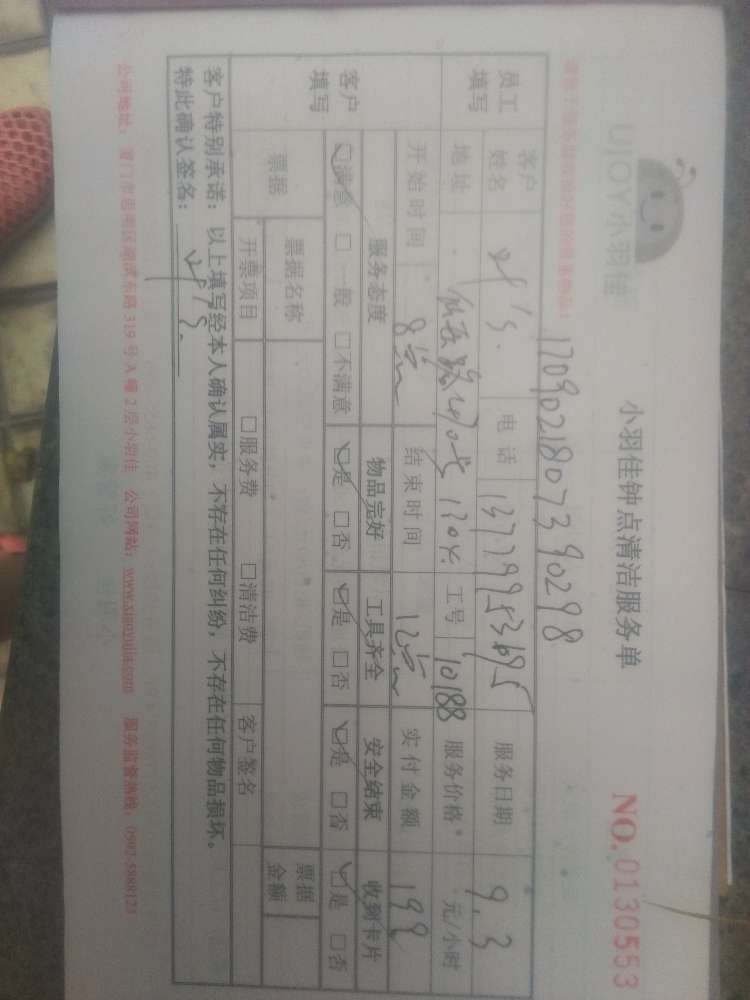 UJOY小羽佳
小羽佳钟点清洁服务单
NO.0130553
1709021807390298
员工填写
客户姓名
电话
服务日期
9.3
地址
工号
10188
服务价格
元/小时
开始时间
8
结束时间
12
实付金额
199
客户填写
服务态度
物品完好
工具齐全
安全结束
收到卡片
☑满意 □一般 □不满意
☑是 □否
☑是 □否
☑是 □否
☑是 □否
票据
票据名称
票据金额
开票项目
□服务费 □清洁费
客户签名
客户特别承诺：以上填写经本人确认属实，不存在任何纠纷，不存在任何物品损坏。
特此确认签名：
公司地址：厦门市思明区湖滨东路319号A幢2层小羽佳 公司网站：www.xiaoyujia.com 服务监督热线：0592-5888123